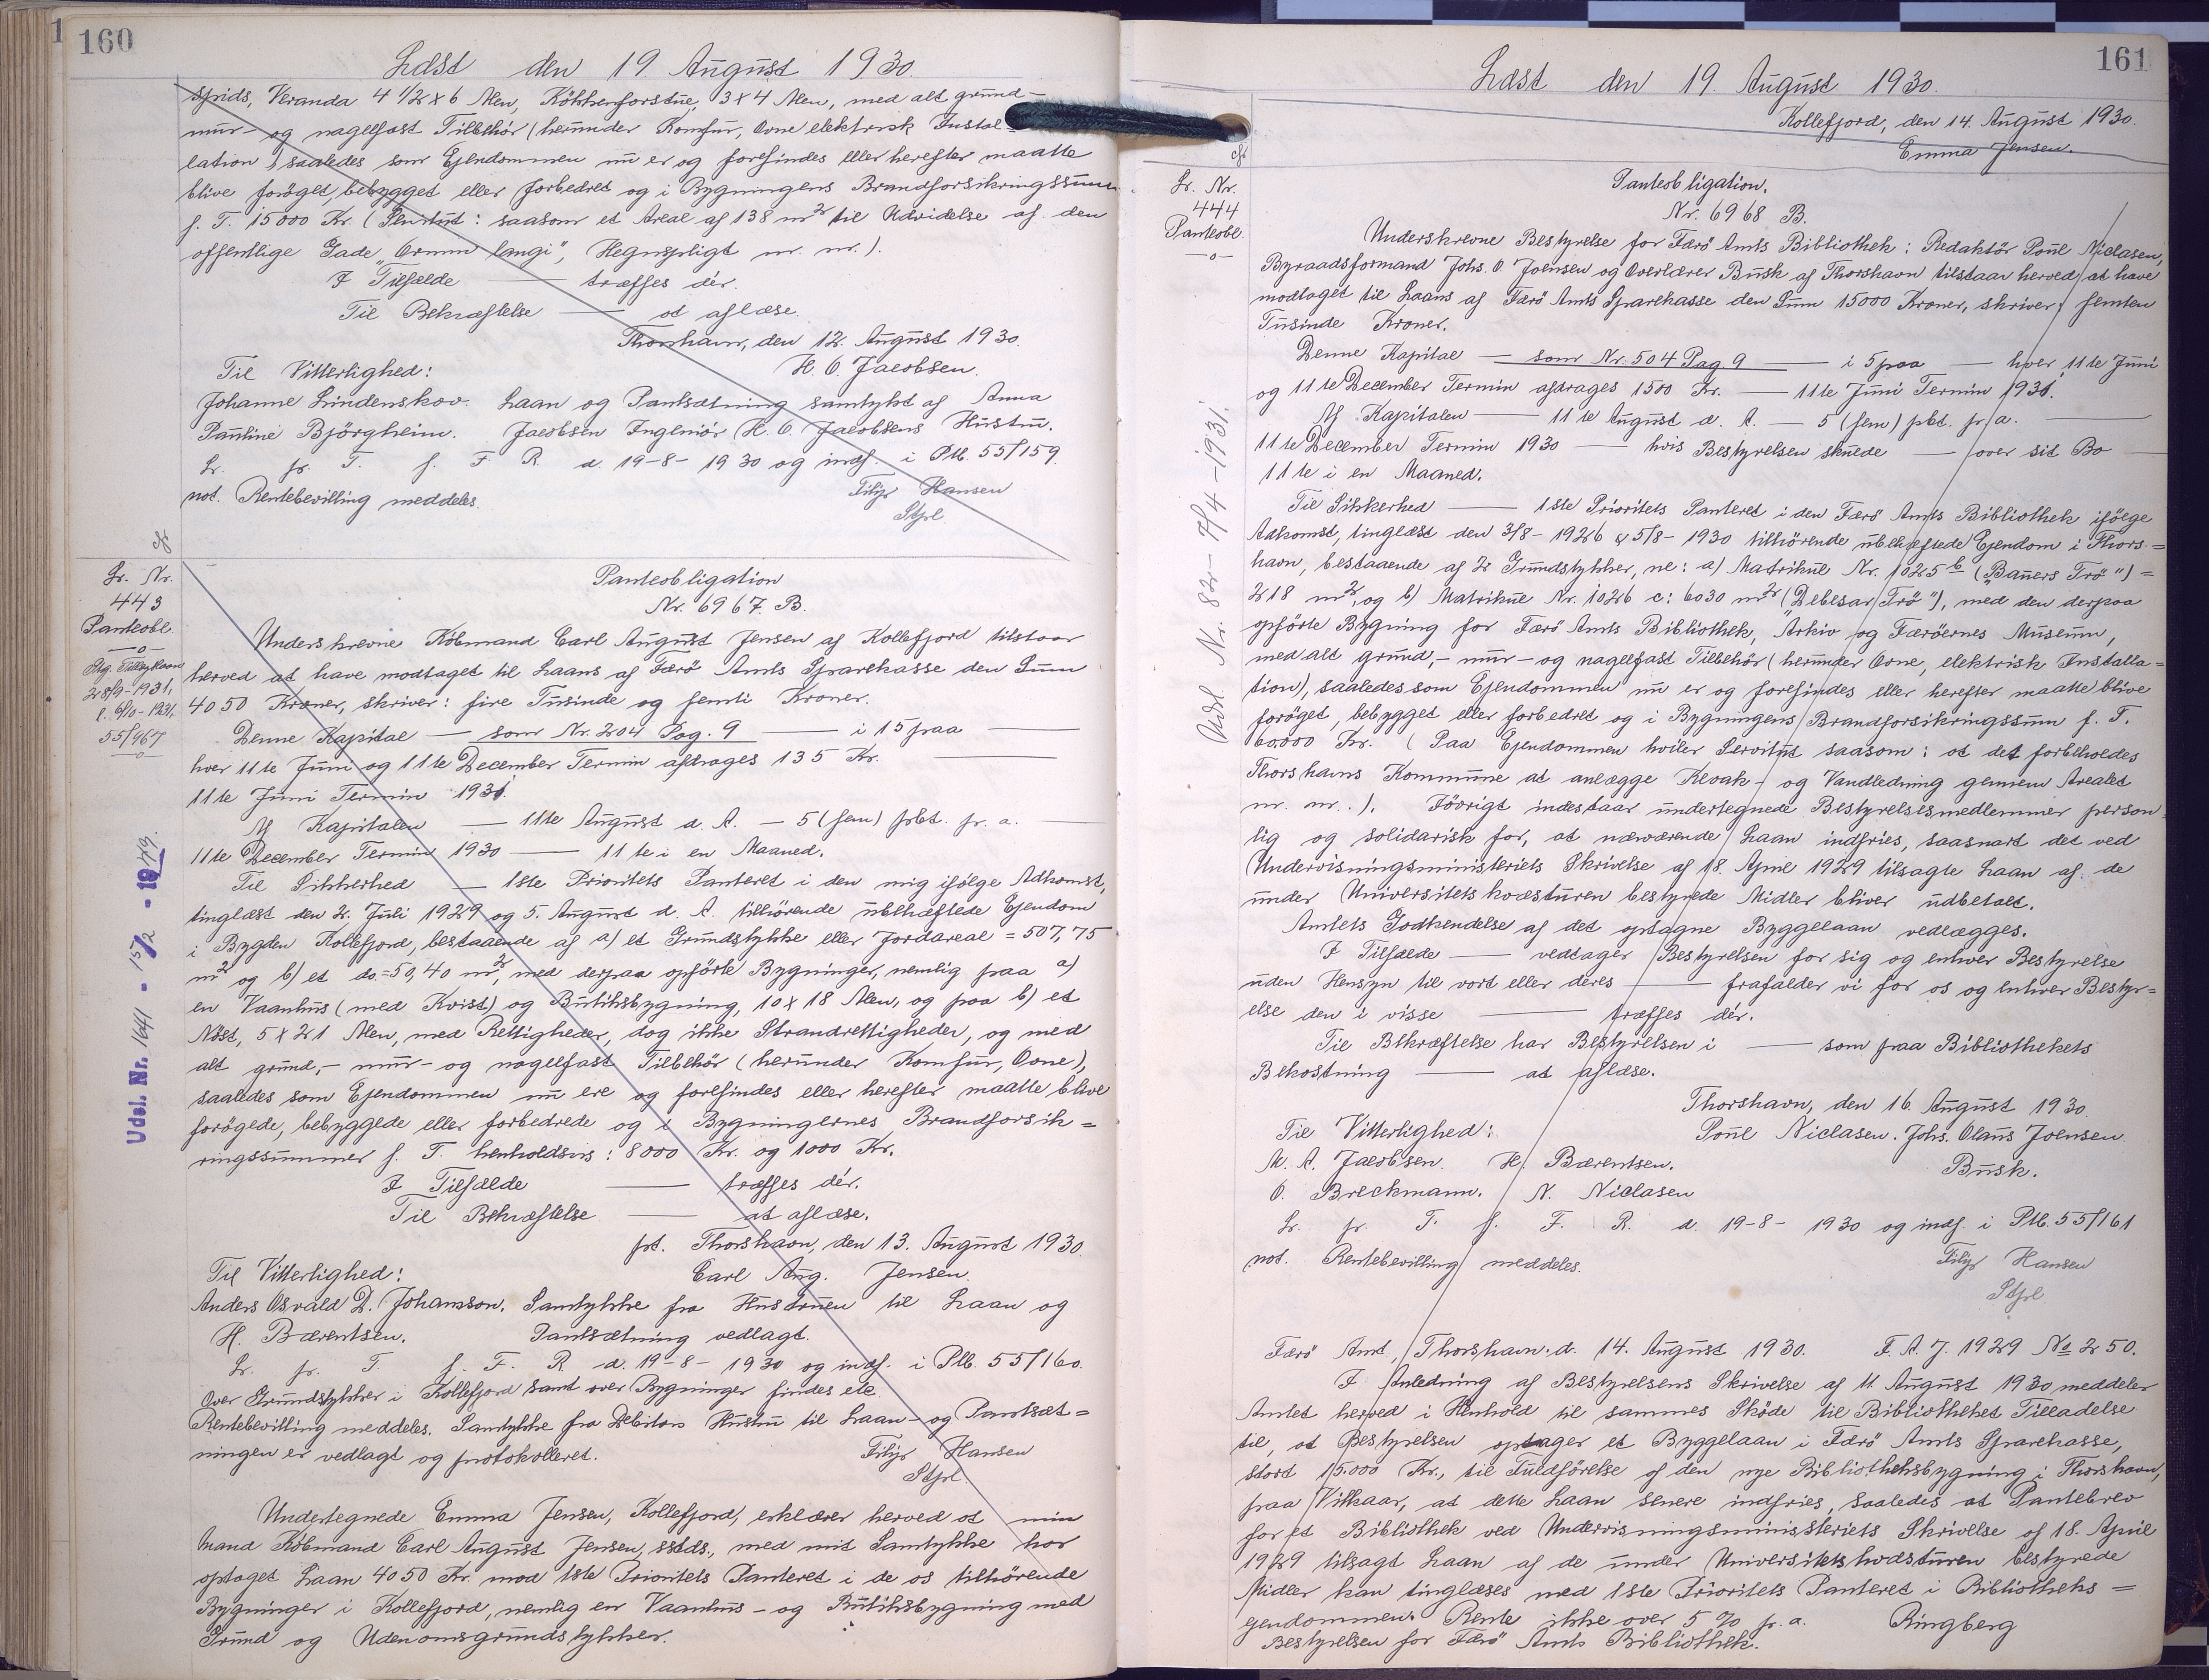 160
Læst den 19. August 1930.
spids, Veranda 4 1/2 x 6 Alen, Kökkenforstue, 3 x 4 Alen, med alt grund-
mur- og nagelfast Tilbehör (herunder Komfur, Ovne elektrisk Instal=
lation), saaledes som Ejendommen nu er og forefindes eller herefter maatte
blive foröget, bebygget eller forbedret og i Bygningens Brandforsikringssum
f. T. 15000 Kr. (Servitut: saasom et Areal af 138 m² til Udvidelse af den
offentlige Gade „Ormin langi", Hegnspligt m. m.).
I Tilfælde — træffes dér.
Til Bekræftelse — at aflæse.
Thorshavn, den 12. August 1930.
Til Vitterlighed: H. O. Jacobsen.
Johanne Lindenskov. Laan og Pantsætning samtykt af Anna
Pauline Björgheim. Jacobsen Ingeniör (H. O. Jacobsens Hustru.
Lr. pr. T. f. F. R. d. 19-8-1930 og indf. i Ptb. 55/159.
not. Rentebevilling meddeles. Filip Hansen
Stfpl.
cf.
Lr. Nr.
443
Panteobl.
—o—
Stg. Tillægslaan
28/9-1931,
l. 6/10-1931,
55/467
—o—
Udsl. Nr. 1641 - 15/2 - 1949.
Panteobligation
Nr. 6967. B.
Underskrevne Köbmand Carl August Jensen af Kollefjord tilstaar
herved at have modtaget til Laans af Færö Amts Sparekasse den Sum
4050 Kroner, skriver: fire Tusinde og femti Kroner.
Denne Kapital — som Nr. 204 Pag. 9 — i 15 paa —
hver 11te Juni og 11te December Termin afdrages 135 Kr. —
11te Juni Termin 1931.
Af Kapitalen — 11te August d. A. — 5 (fem) pCt. pr. a. —
11te December Termin 1930 — 11te i en Maaned.
Til Sikkerhed — 1ste Prioritets Panteret i den mig ifölge Adkomst,
tinglæst den 2. Juli 1929 og 5. August d. A. tilhörende ubehæftede Ejendom
i Bygden Kollefjord, bestaaende af a) et Grundstykke eller Jordareal = 507,75
m² og b) et do. = 50,40 m², med derpaa opförte Bygninger, nemlig paa a)
en Vaanhus (med Kvist) og Butiksbygning, 10 x 18 Alen, og paa b) et
Nöst, 5 x 21 Alen, med Rettigheder, dog ikke Strandrettigheder, og med
alt grund,- mur- og nagelfast Tilbehör (herunder Komfur, Ovne),
saaledes som Ejendommen nu ere og forefindes eller herefter maatte blive
forögede, bebyggede eller forbedrede og i Bygningernes Brandforsik=
ringssummer f. T. henholdsvis: 8000 Kr. og 1000 Kr.
I Tilfælde — træffes dér.
Til Bekræftelse — at aflæse.
pt. Thorshavn, den 13. August 1930.
Til Vitterlighed: Carl Aug. Jensen.
Anders Osvald D. Johansson. Samtykke fra Hustruen til Laan og
H. Bærentsen. Pantsætning vedlagt.
Lr. pr. T. f. F. R. d. 19-8-1930 og indf. i Ptb. 55/160.
Over Grundstykker i Kollefjord samt over Bygninger findes etc.
Rentebevilling meddeles. Samtykke fra Debitors Hustru til Laan- og Pantsæt=
ningen er vedlagt og protokolleret. Filip Hansen
Stfpl.
Undertegnede Emma Jensen, Kollefjord, erklærer herved at min
Mand Köbmand Carl August Jensen, sstds., med mit Samtykke har
optaget Laan 4050 Kr. mod 1ste Prioritets Panteret i de os tilhörende
Bygninger i Kollefjord, nemlig en Vaanhus- og Butiksbygning med
Grund og Udenomsgrundstykker.
161
Læst den 19. August 1930.
Kollefjord, den 14. August 1930.
Emma Jensen.
cf.
Lr. Nr.
444
Panteobl.
—o—
Udsl. Nr. 82 - 7/4 - 1931.
Panteobligation.
Nr. 6968 B.
Underskrevne Bestyrelse for Færö Amts Bibliothek: Redaktör Poul Niclasen,
Byraadsformand Johs. O. Joensen og Overlærer Busk af Thorshavn tilstaar herved at have
modtaget til Laans af Færö Amts Sparekasse den Sum 15000 Kroner, skriver: femten
Tusinde Kroner.
Denne Kapital — som Nr. 504 Pag. 9 — i 5 paa — hver 11te Juni
og 11te December Termin afdrages 1500 Kr. — 11te Juni Termin 1931.
Af Kapitalen — 11te August d. A. — 5 (fem) pCt. pr. a. —
11te December Termin 1930 — hvis Bestyrelsen skulde — over sit Bo —
11te i en Maaned.
Til Sikkerhed — 1ste Prioritets Panteret i den Færö Amts Bibliothek ifölge
Adkomst, tinglæst den 3/8-1926 & 5/8-1930 tilhörende ubehæftede Ejendom i Thors=
havn, bestaaende af 2 Grundstykker, nl: a) Matrikul Nr. 1025 b („Bauers Trö") =
218 m², og b) Matrikul Nr. 1026 c: 6030 m² („Debesar Trö"), med den derpaa
opförte Bygning for Færö Amts Bibliothek, Arkiv og Færöernes Museum,
med alt grund,- mur- og nagelfast Tilbehör (herunder Ovne, elektrisk Installa=
tion), saaledes som Ejendommen nu er og forefindes eller herefter maatte blive
foröget, bebygget eller forbedret og i Bygningens Brandforsikringssum f. T.
60.000 Kr. (Paa Ejendommen hviler Servitut saasom: at det forbeholdes
Thorshavns Kommune at anlægge Kloak- og Vandledning gennem Arealet
m. m.). Iövrigt indestaar undertegnede Bestyrelsesmedlemmer person
lig og solidarisk for, at nærværende Laan indfries, saasnart det ved
Undervisningsministeriets Skrivelse af 18. April 1929 tilsagte Laan af de
under Universitetskvæsturen bestyrede Midler bliver udbetalt.
Amtets Godkendelse af det optagne Byggelaan vedlægges.
I Tilfælde — vedtager Bestyrelsen for sig og enhver Bestyrelse
uden Hensyn til vort eller deres — frafalder vi for os og enhver Bestyr=
else den i visse — træffes dér.
Til Bekræftelse har Bestyrelsen i — som paa Bibliothekets
Bekostning — at aflæse.
Thorshavn, den 16. August 1930.
Til Vitterlighed: Poul Niclasen. Johs. Olaus Joensen.
M. A. Jacobsen. H. Bærentsen. Busk.
O. Breckmann. N. Niclasen
Lr. pr. T. f. F. R. d. 19-8-1930 og indf. i Ptb. 55/161
not. Rentebevilling meddeles. Filip Hansen
Stfpl.
Færö Amt, Thorshavn. d. 14. August 1930. F. A. J. 1929 No 250.
I Anledning af Bestyrelsens Skrivelse af 11. August 1930 meddeler
Amtet herved i Henhold til sammes Sköde til Bibliotheket Tilladelse
til, at Bestyrelsen optager et Byggelaan i Færö Amts Sparekasse,
stort 15.000 Kr., til Fuldförelse af den nye Bibliotheksbygning i Thorshavn,
paa Vilkaar, at dette Laan senere indfries, saaledes at Pantebrev
for et Bibliothek ved Undervisningsministeriets Skrivelse af 18. April
1929 tilsagt Laan af de under Universitetskvæsturen bestyrede
Midler kan tinglæses med 1ste Prioritets Panteret i Bibliotheks=
gendommen. Rente ikke over 5 % pr. a. Ringberg
Bestyrelsen for Færö Amts Bibliothek.